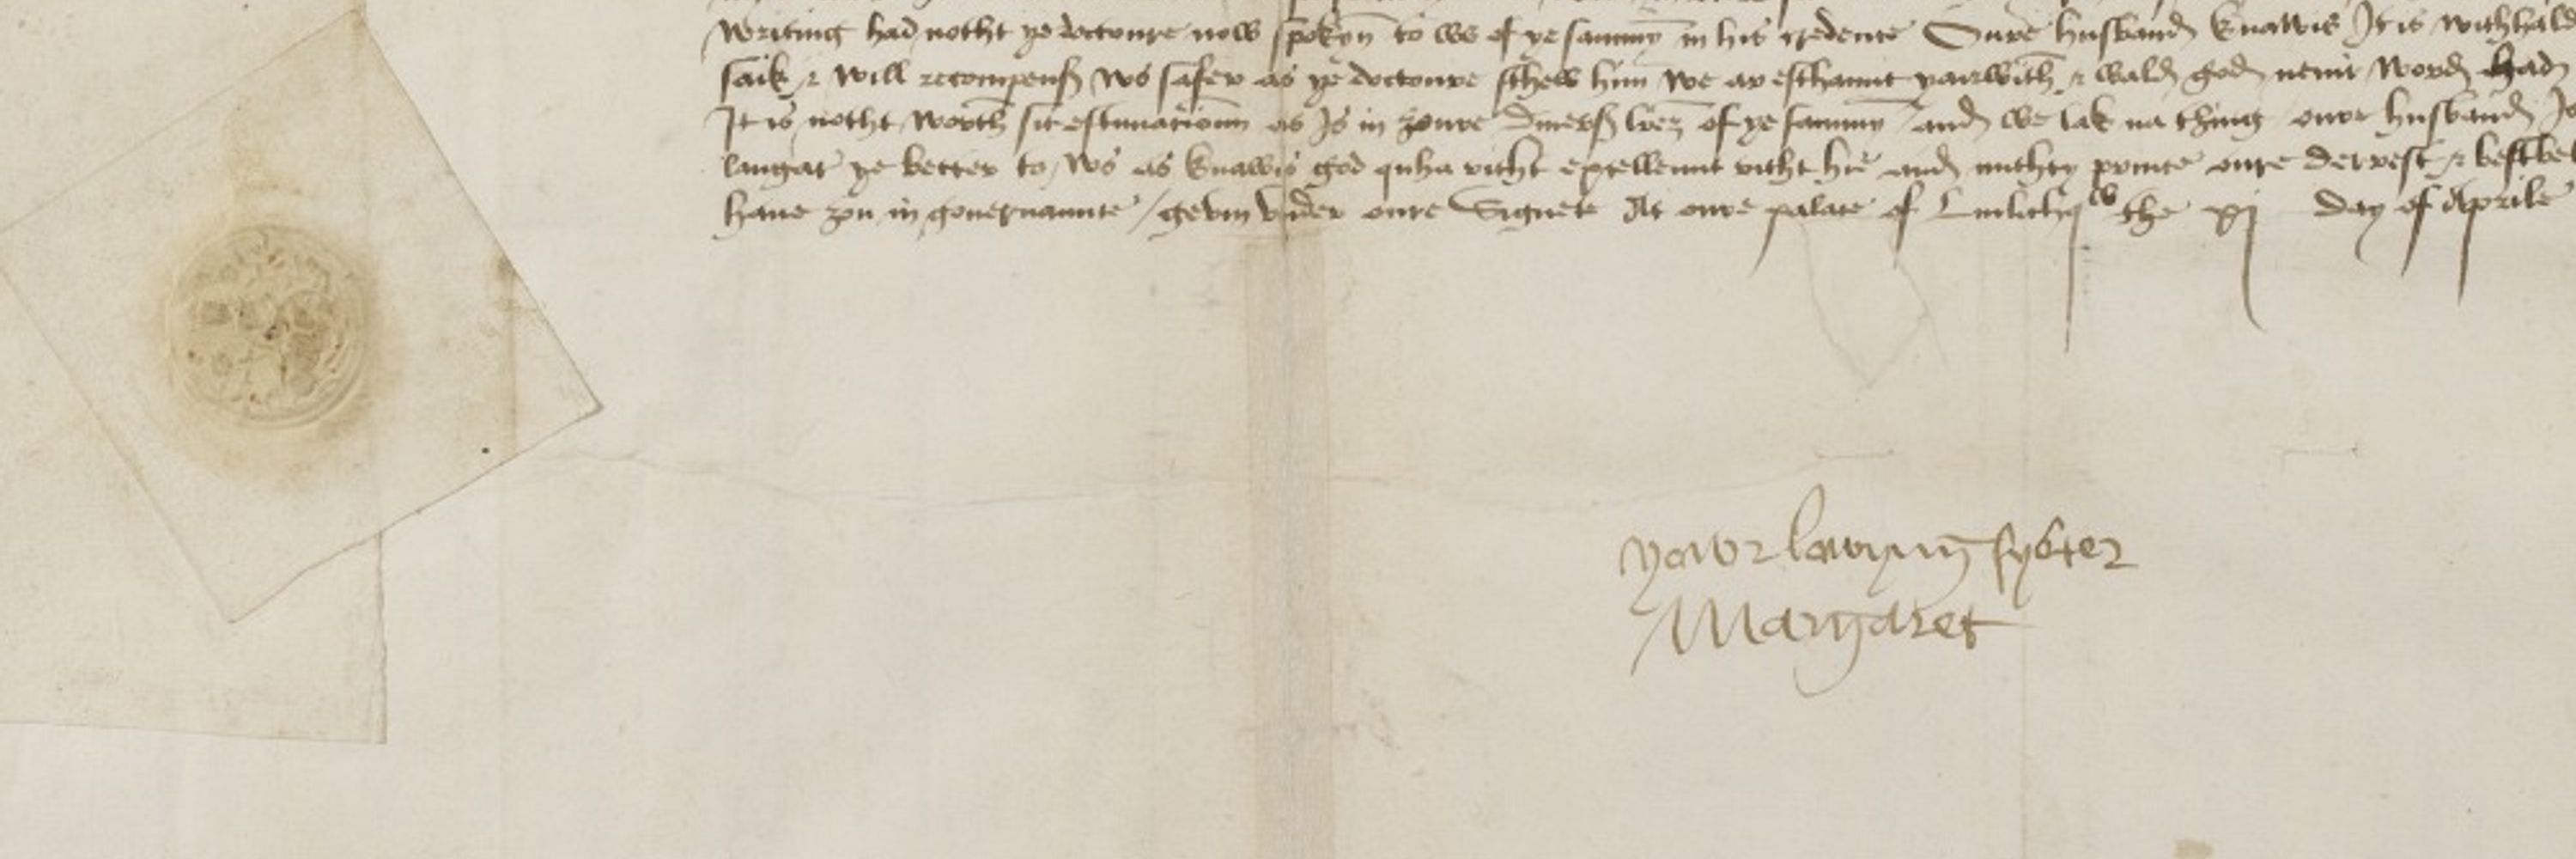 writing had notht ye doctoure now spokyn to ws of ye sammyn in his credence Oure husband knawis It is withhald
saik & will recompens ws safer as ye doctoure schew him we ar eschamit yairwith & wald god nevir word had
It is notht worth sic estimacioun as Is in ȝoure diuerß lrez of ye sammyn and we lak na thing oure husband Is
langar ye better to ws as knawis god quha richt excellennt richt hie and mithty prince oure derrest & best
haue ȝou in gouernannce / gevin vnder oure Signete At oure palace of Linlithqw the xj day of Aprile
yowr lowyng syster
Margaret